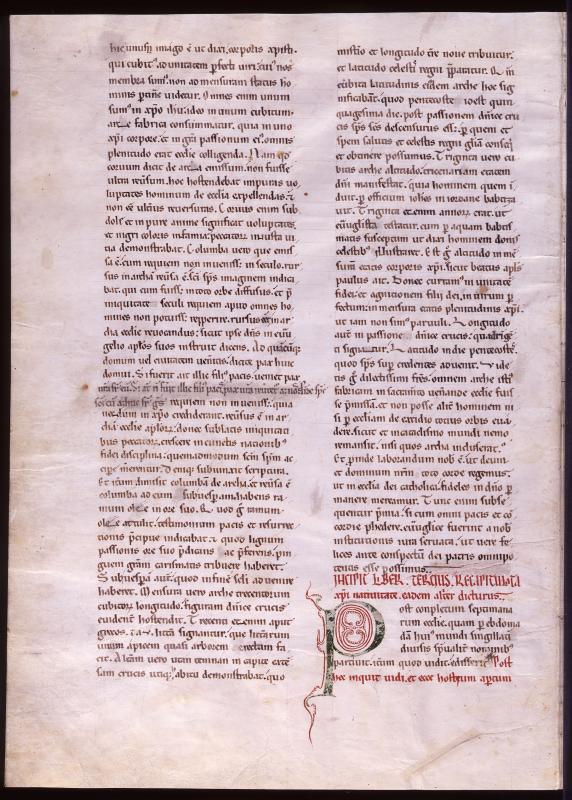 hic unusqsq; imago ē ut dixi, corporis xpisti.
qui cubitꝰ ad unitatem pfecti viri; cuiꝰ nos
membra sumꝰ. non ad mensuram status ho
minis ptinē videtur. Omnes enim unum
sumꝰ in xpo ihu. ideo in unum cubitum
arce fabrica consummatur. quia in uno
xpi corpore. et in gra passionum eiꝰ. omnis
plenitudo erat ecclie colligenda. Nam qd
corvum dicit de archa emissum. non fuisse
ultra reversum. hoc hostendebat impuras vo
luptates hominum de ecclia expellendas. &
non eē ulterius reversuras. Corvus enim sub
dolꝰ et in pure anime significat voluptates.
et nigri coloris infamia. peccatorum iniusta vi
tia demonstrabat. Columba vero que emis
sa ē. cum requiem non invenisset in seculo. rur
sus in archa reversa ē. sci sps imaginem indica
bat. qui cum fuisset in toto orbe diffusus. et p
iniquitate seculi requiem apud omnes ho
mines non potuisset repperire. rursus ē in ar
cha ecclie revocandus: sicut ipse dns in evan
gelio aplos suos instruit dicens. Ad quacumq;
domum vel civitatem veneritis: dicite pax huic
domui. Si fuerit ibi ille filiꝰ pacis, veniet pax
requiem non invenisset. quia
nec dum in xpo crediderant. reversus ē in ar
cha ecclie aplorum: donec sublatis iniquitati
bus peccatorum. crescere in cunctis nationibꝰ
fidei disciplina: quemadmodum semꝑ spm ac
cipe meretur. Deniq; subiunxit scriptura.
Et iterum dimisit columbā de archa. et reversa ē
columba ad eum subvesperam. habens ra
mum olive in ore suo. Quod ḡ ramum
olive attulit. testimonium pacis et resurrec
tionis pcipue indicabat. & quod lignum
passionis ore suo pdicans ac pferens. pin
guem gram carismatis tribuere haberet.
Subvesperā autē. quod in fine scli advenire
haberet. Mensura vero arche trecentorum
cubitorum longitudo. figuram dnice crucis
evidenter hostendit. Trecenti et enim aput
grecos. tau. littera signantur. que littera rum
unum apicem quasi arborem erectam fa
cit. Alterum vero utan temnan in capite exte
sam crucis utiq; habitu demonstrabat. quo
mistio et longitudo cre nove tribuitur.
et latitudo celesti regni pparatur. Q in
cubita latitudinis eiusdem arche hoc sig
nificabant: quod pentecoste idest quin
quagesima die. post passionem dnice cru
cis sps scs descensurus eēt: p quem et
spem salutis et celestis regni gliam conseq
et obtinere possumus. Triginta vero cu
bitis arche altitudo. tricenariam etatem
dni manifestat. quia hominem quem i
duit. p officium iohis in iordane baptiza
vit. Triginta et enim annorum erat. ut
evangelista testatur. cum p aquam babtis
matis susceptum ut dixi hominem donis
celestibꝰ illustraret. Est ḡ altitudo in me
sura etatis corporis xpi. sicut beatus apls
paulus ait. Donec curramꝰ in unitate
fidei. et agnitionem filii dei. in virum p
fectum: in mensura etatis plenitudinis xpi.
ut iam non simꝰ parvuli. Longitudo
aut in passione dnice crucis: quadrige
ti signatur. Latitudo in die pentecostes
quod sps sup credentes advenit. Vide
tis ḡ dilectissimi frēs. omnem arche isti
fabricam in sacramto veniende ecclie fuis
se pmissa. et non posse aliter hominem ni
si p eccliam de excidio totius orbis eva
dere. sicut et inciadissimo mundi nemo
remansit. nisi quos archa induserat.
Et p inde laborandum nob ē. ut deum
et dominum nrm toto corde rogemus.
ut in ecclia dei catholica. fideles in dno p
manere mereamur. Tunc enim subse
quentur pmia. si cum omni pacis et co
cordie phedere. evangelice fuerint a nob
institutionis iura servata. ut vere fe
lices ante conspectū dei patris omnipo
tentis eēse possimus.
INCIPIT LIBER TERCIUS. RECAPITULATA
xpi nativitate. eadem aliter dicturus.
Post conpletum septimana
rum ecclie. quam p ebdoma
dā huiꝰ mundi singillati
divisis spūalit nominibꝰ
partivit. iterum quod vidit. edisserit. Post
hec inquit vidi. et ecce hostium aptum